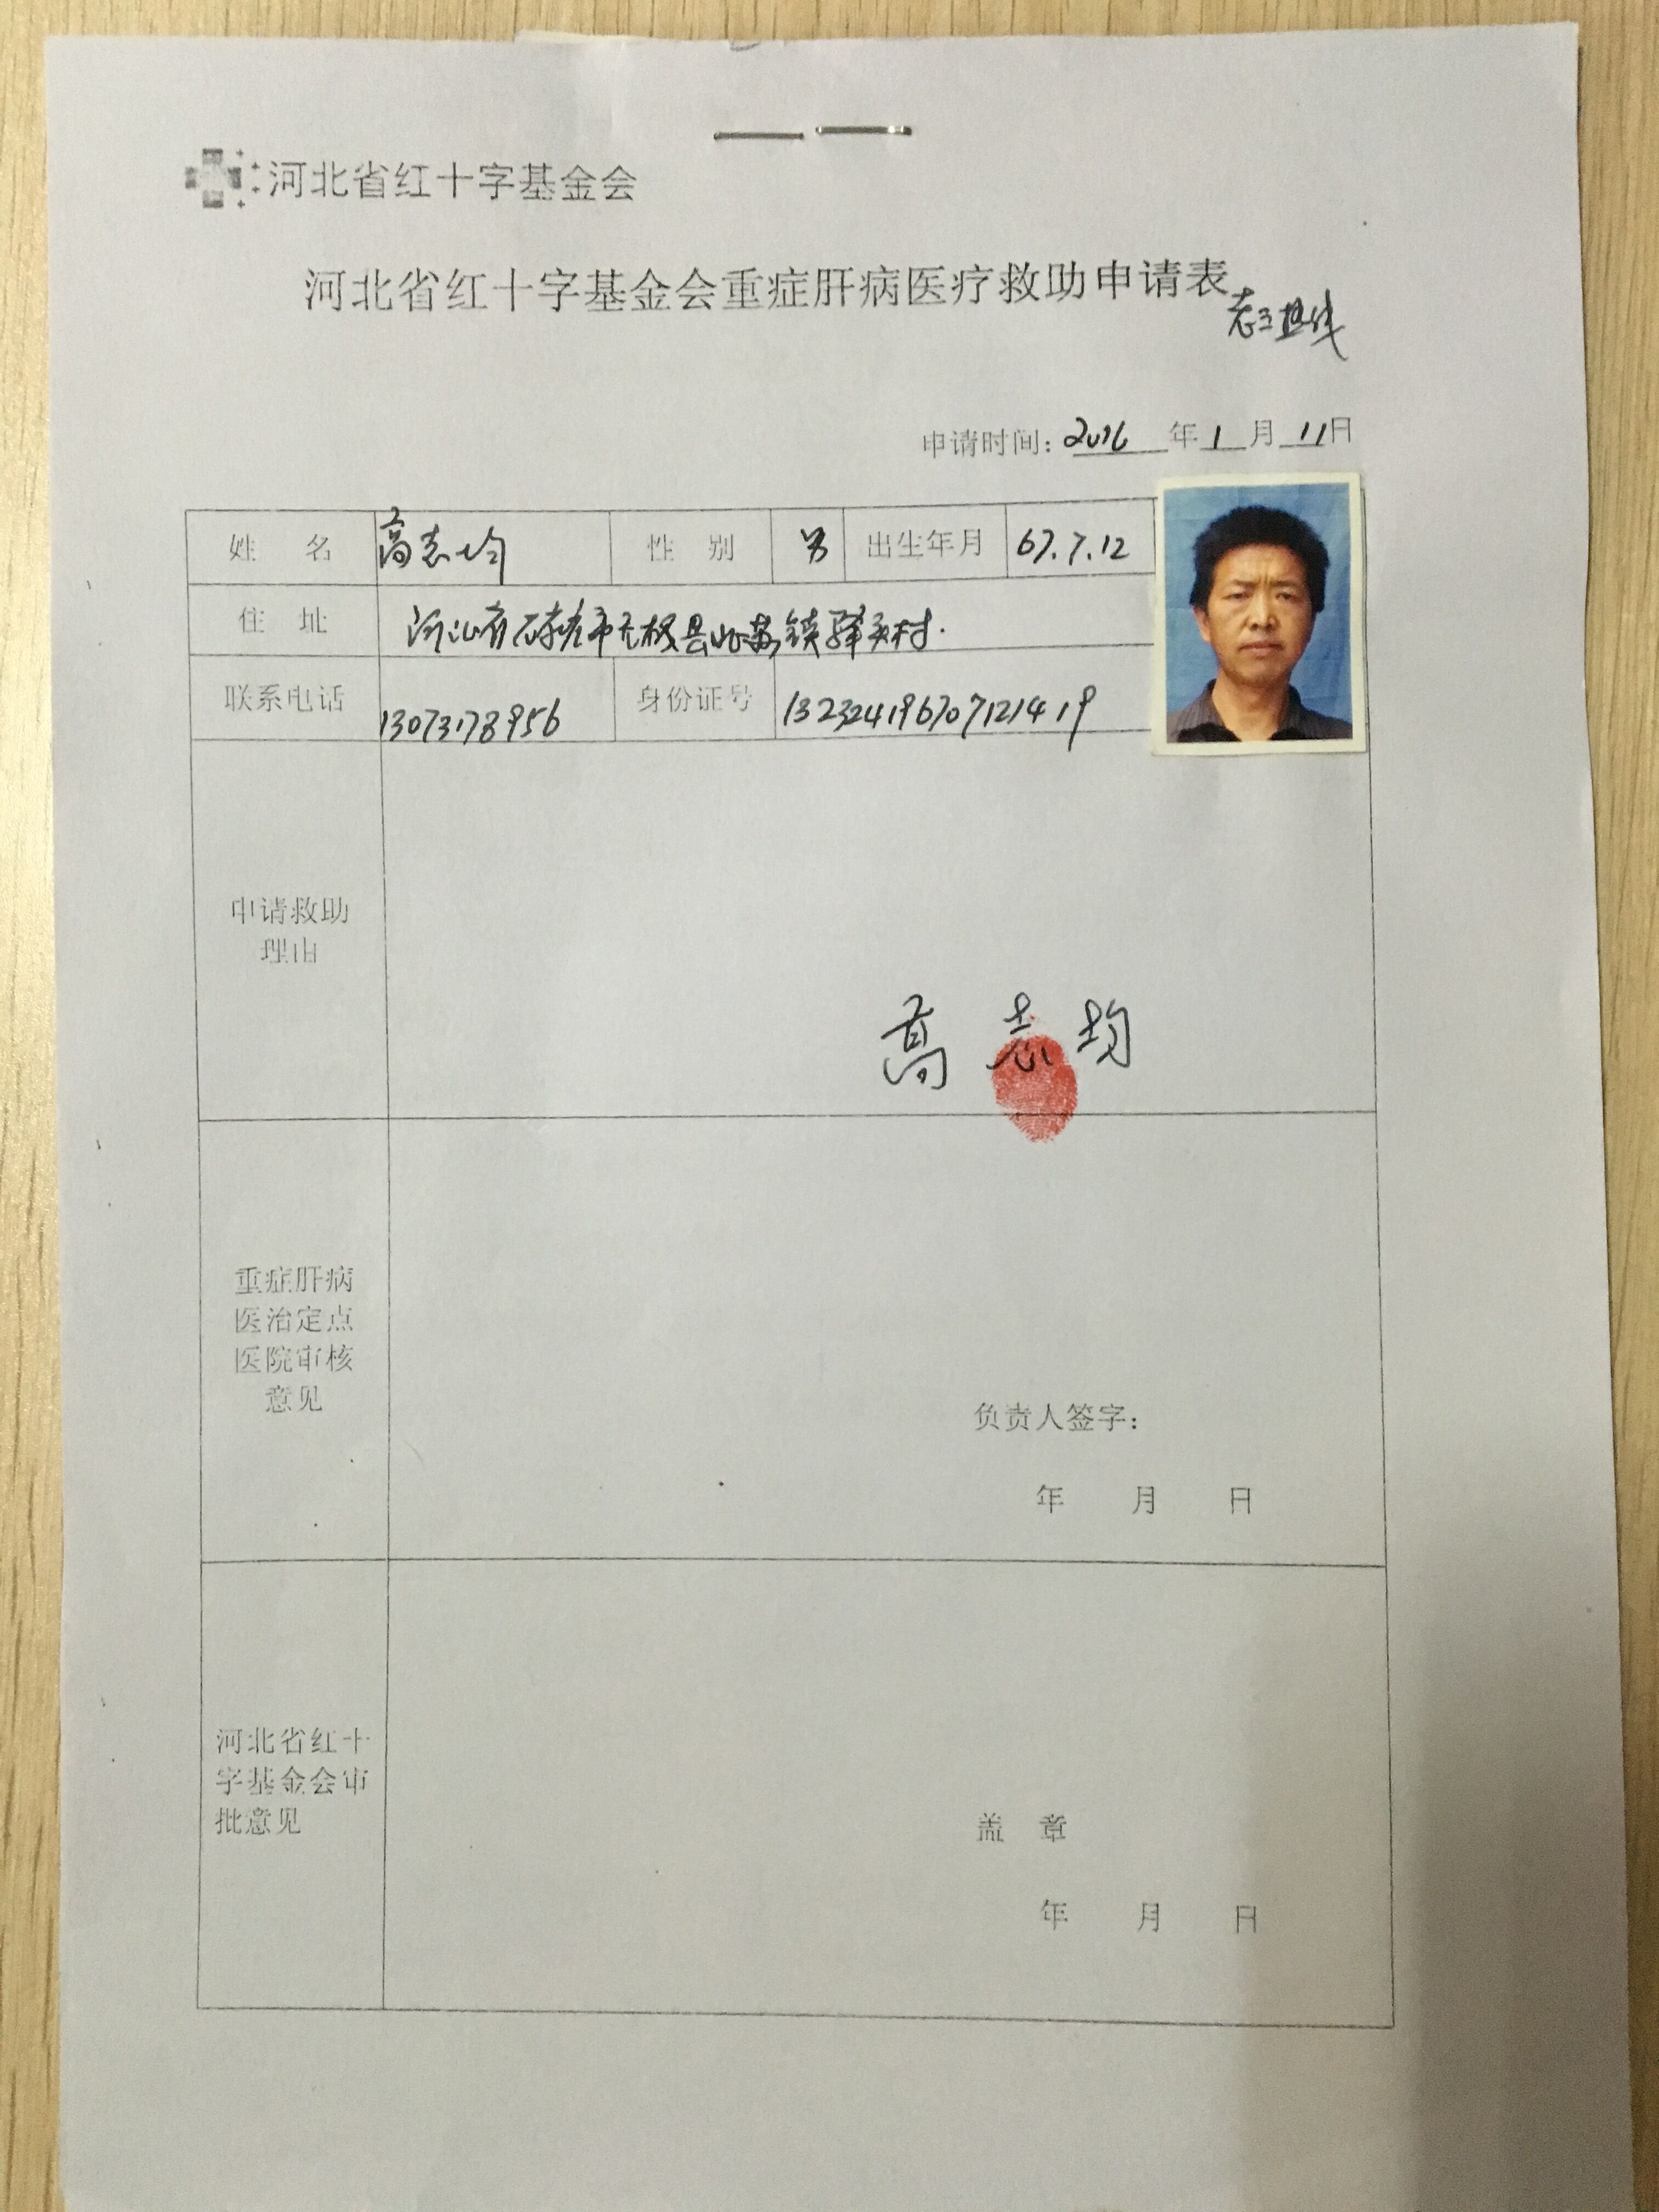 河北省红十字基金会
河北省红十字基金会重症肝病医疗救助申请表
申请时间：2016年1月11日
姓 名 高志均 性 别 男 出生年月 67.7.12
住 址 河北省石家庄市无极县北苏镇驿头村.
联系电话 13073178956 身份证号 132324196707121419
申请救助
理由
高志均
重症肝病
医治定点
医院审核
意见
负责人签字：
年 月 日
河北省红十
字基金会审
批意见
盖 章
年 月 日